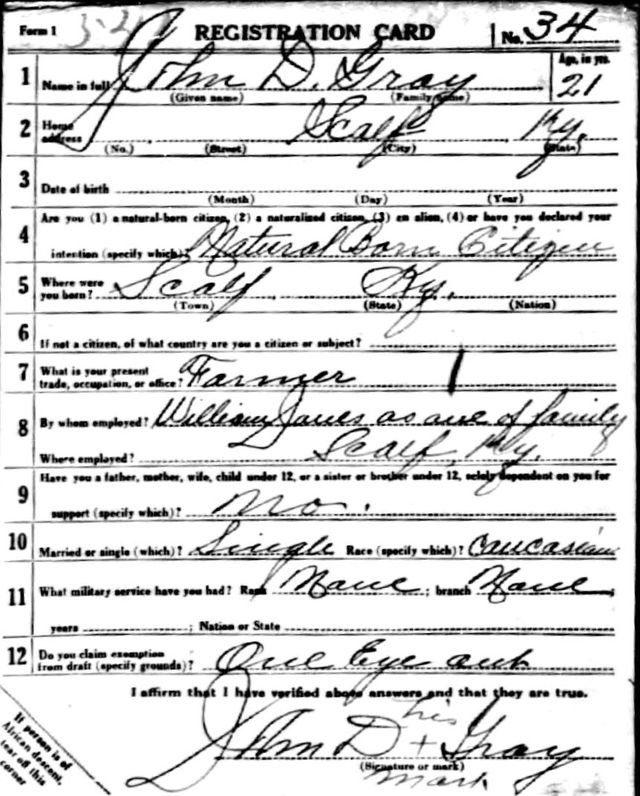 Form 1 REGISTRATION CARD No. 34
Age, in yrs.
1 Name in full John D. Gray 21
(Given name) (Family name)
2 Home address Scalf Ky.
(No.) (Street) (City) (State)
3 Date of birth
(Month) (Day) (Year)
4 Are you (1) a natural-born citizen, (2) a naturalized citizen, (3) an alien, (4) or have you declared your
intention (specify which)? Natural Born Citizen
5 Where were you born? Scalf Ky.
(Town) (State) (Nation)
6 If not a citizen, of what country are you a citizen or subject?
7 What is your present trade, occupation, or office? Farmer
8 By whom employed? William as one of family
Where employed? Scalf Ky.
9 Have you a father, mother, wife, child under 12, or a sister or brother under 12, solely dependent on you for
support (specify which)? No.
10 Married or single (which)? Single Race (specify which)? Caucasian
11 What military service have you had? Rank None ; branch None ;
years ; Nation or State
12 Do you claim exemption from draft (specify grounds)? One Eye out
I affirm that I have verified above answers and that they are true.
his
John D + Gray
(Signature or mark)
mark
If person is of
African descent,
tear off this
corner